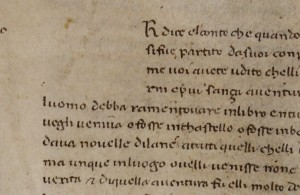 R dice elconto che quando
sifue partito dasuoi con
me voi auete udito chelli
rni epiu sança auentur
luomo debba ramentouare inlibro entu
uegli veniua ofosse inchastello ofosse inbe
daua nouelle dilanc atutti quelli chelli
ma unque inluogo ouelli venisse none
verita & diquella auentura fuelli molto do